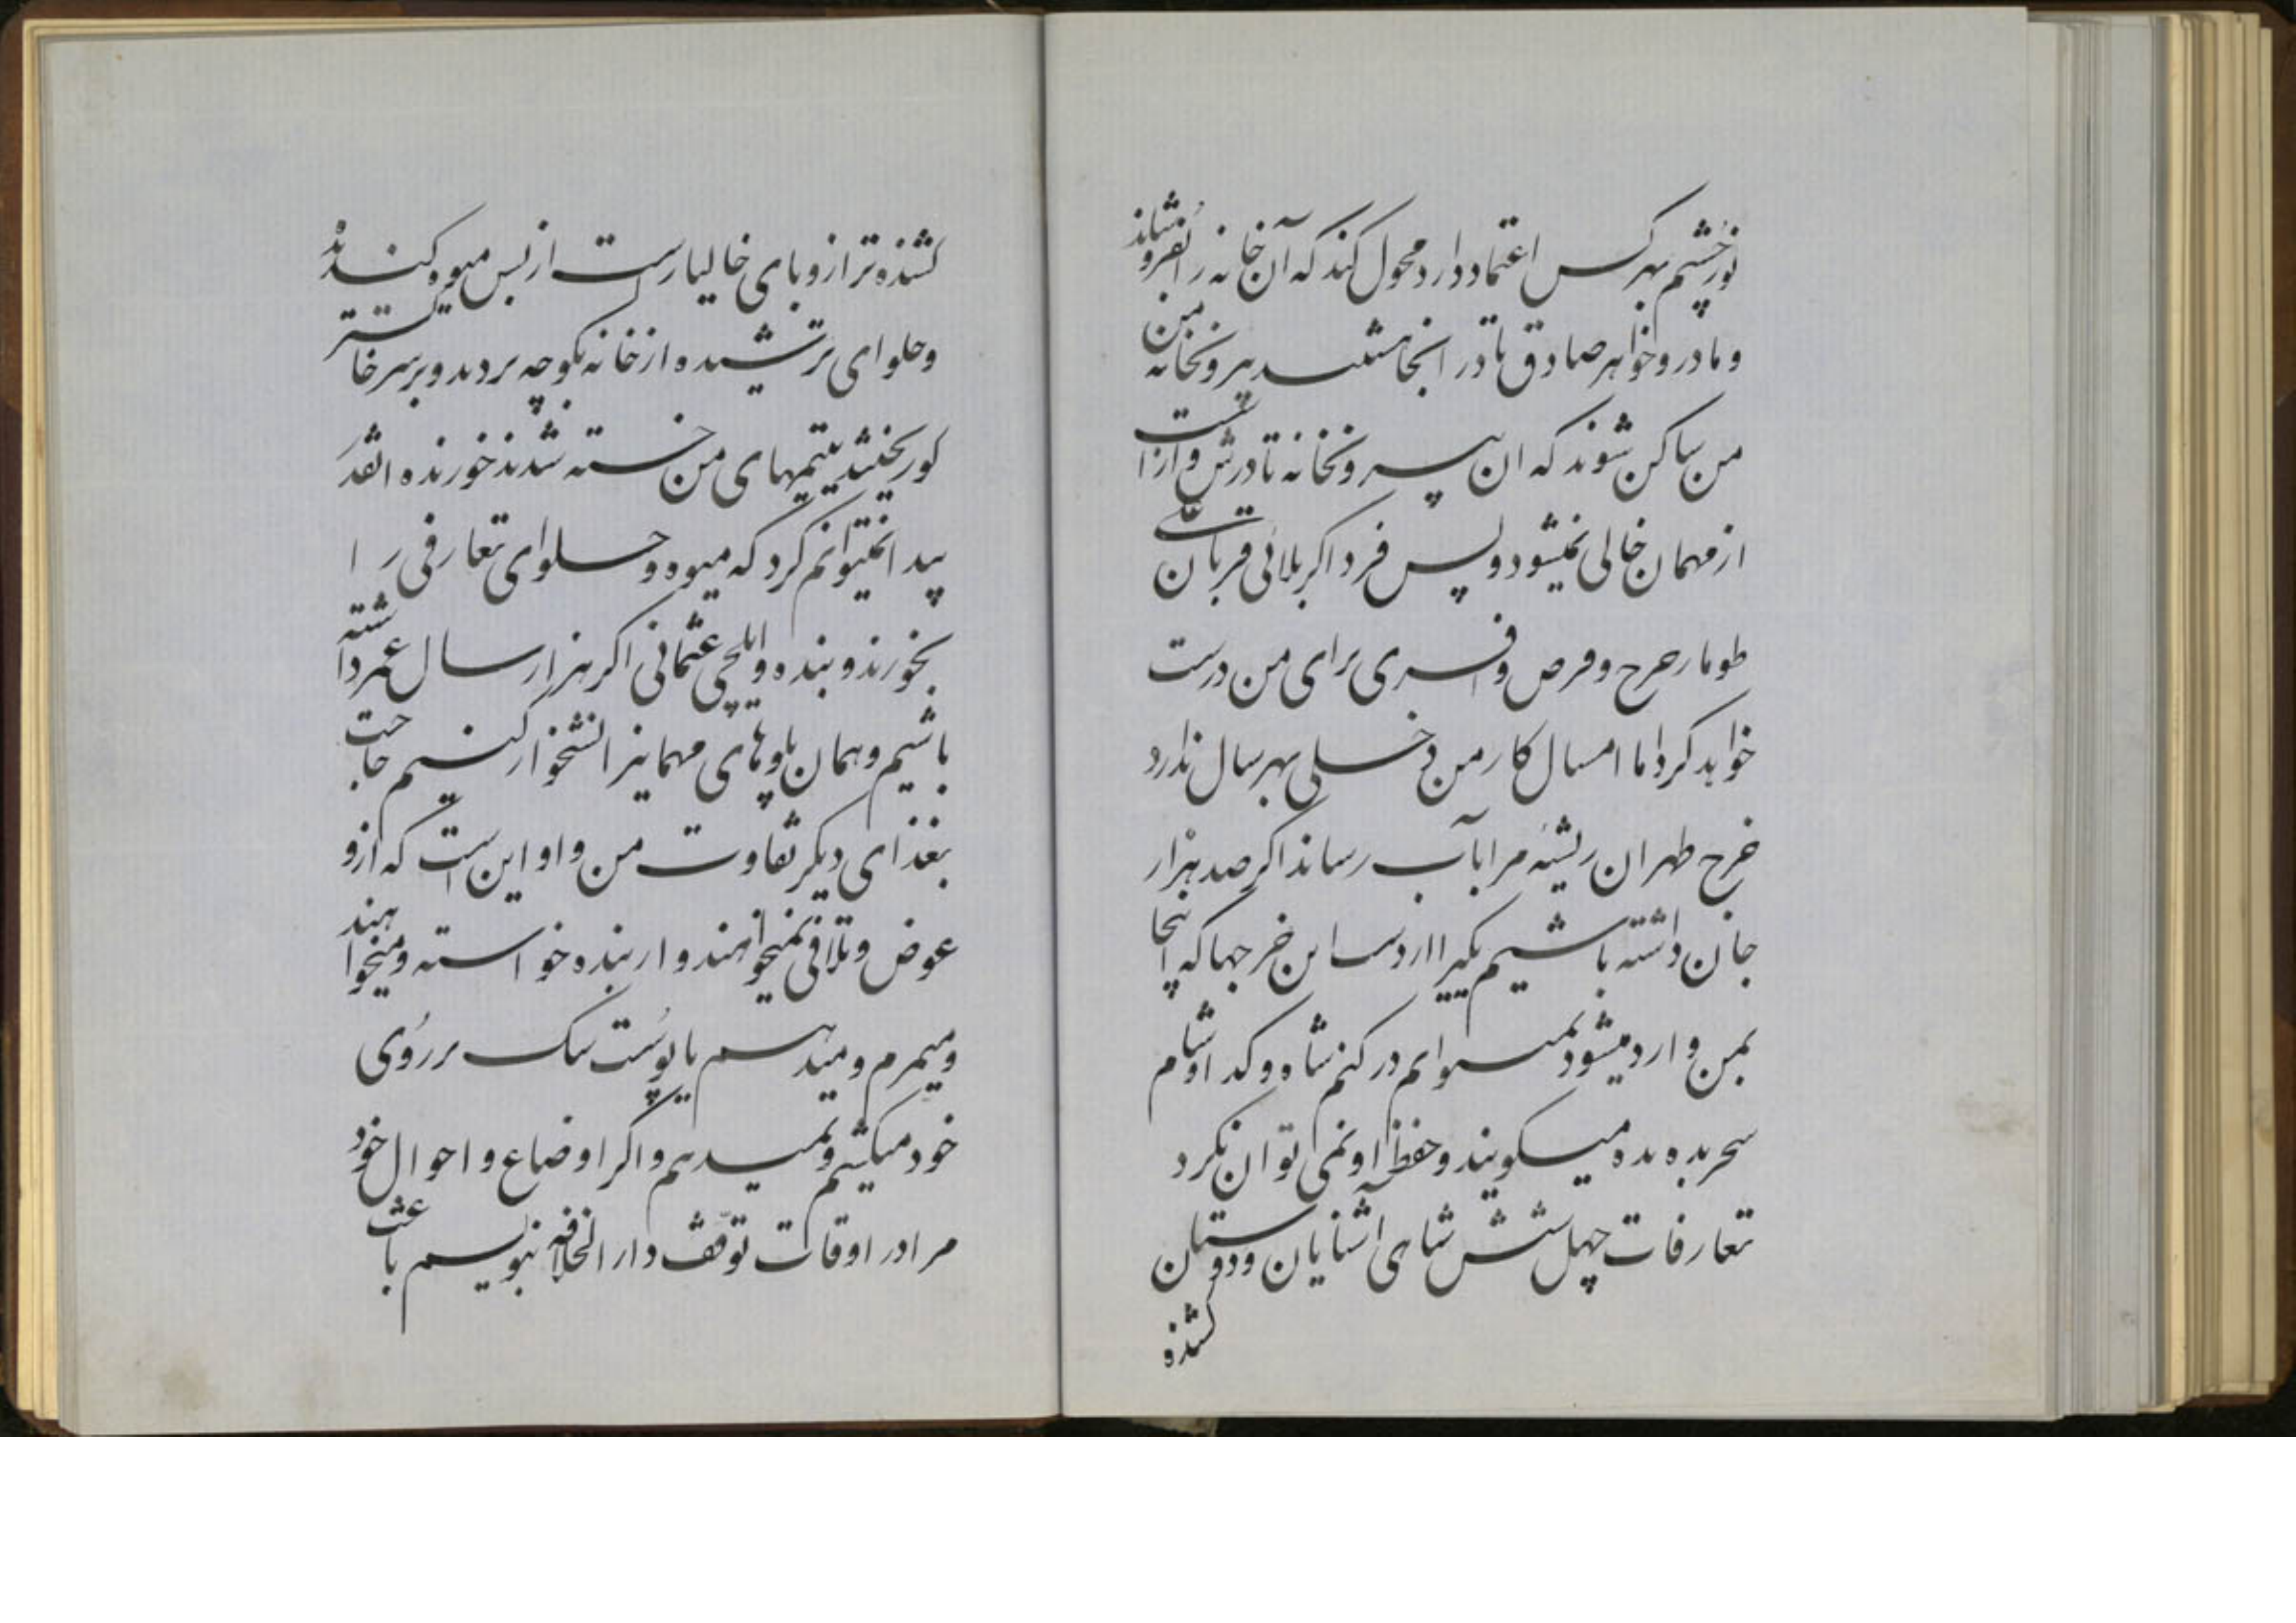 نورچشم بهر کس اعتماد دارد محول کند که آن خانه را بفروشاند
و مادر و خواهر صادق تا در انجا هستند بیرونخانه من
من ساکن شوند که ان بیرونخانه تا درش واز است
از مهمان خالی نمیشود و پس فردا کربلائی قربان
طومار خرج و قرض و افسری برای من درست
خواهد کرد اما امسال کار من دخلی بهر سال ندارد
خرج طهران ریشهٔ مرا بآب رساند اگر صد هزار
جان داشته باشیم یکیرا از دست این خرجها که اینجا
بمن وارد میشود نمیتوانم در کنم شاه و گدا و شام
سحر بده بده میگویند و حفظ او نمی توان نکرد
تعارفات چهل شش شاهی اشنایان و دوستان
کشنده
کشنده تر از وبای خالیارست از بس میوه گندیده
و حلوای ترشیده از خانه بکوچه بردند و بر سر خاکستر
کور یختند یتیمهای من خسته شدند خورنده انقدر
پیدا نمیتوانم کرد که میوه و حلوای تعارفی را
بخورند و بنده و ایلچی عثمانی اگر هزار سال عمر داشته
باشیم و همان پلوهای مهمانیرا نشخوار کنیم حاجت
بغذای دیگر تفاوت من و او این است که ازو
عوض و تلافی نمیخواهند و از بنده خواسته و میخواهند
و میمرم و میدهم یا پوست سک بر روی
خود میکشم و نمیدهم و اگر اوضاع و احوال خود
مرا در اوقات توقف دار الخلافه بنویسم باعث